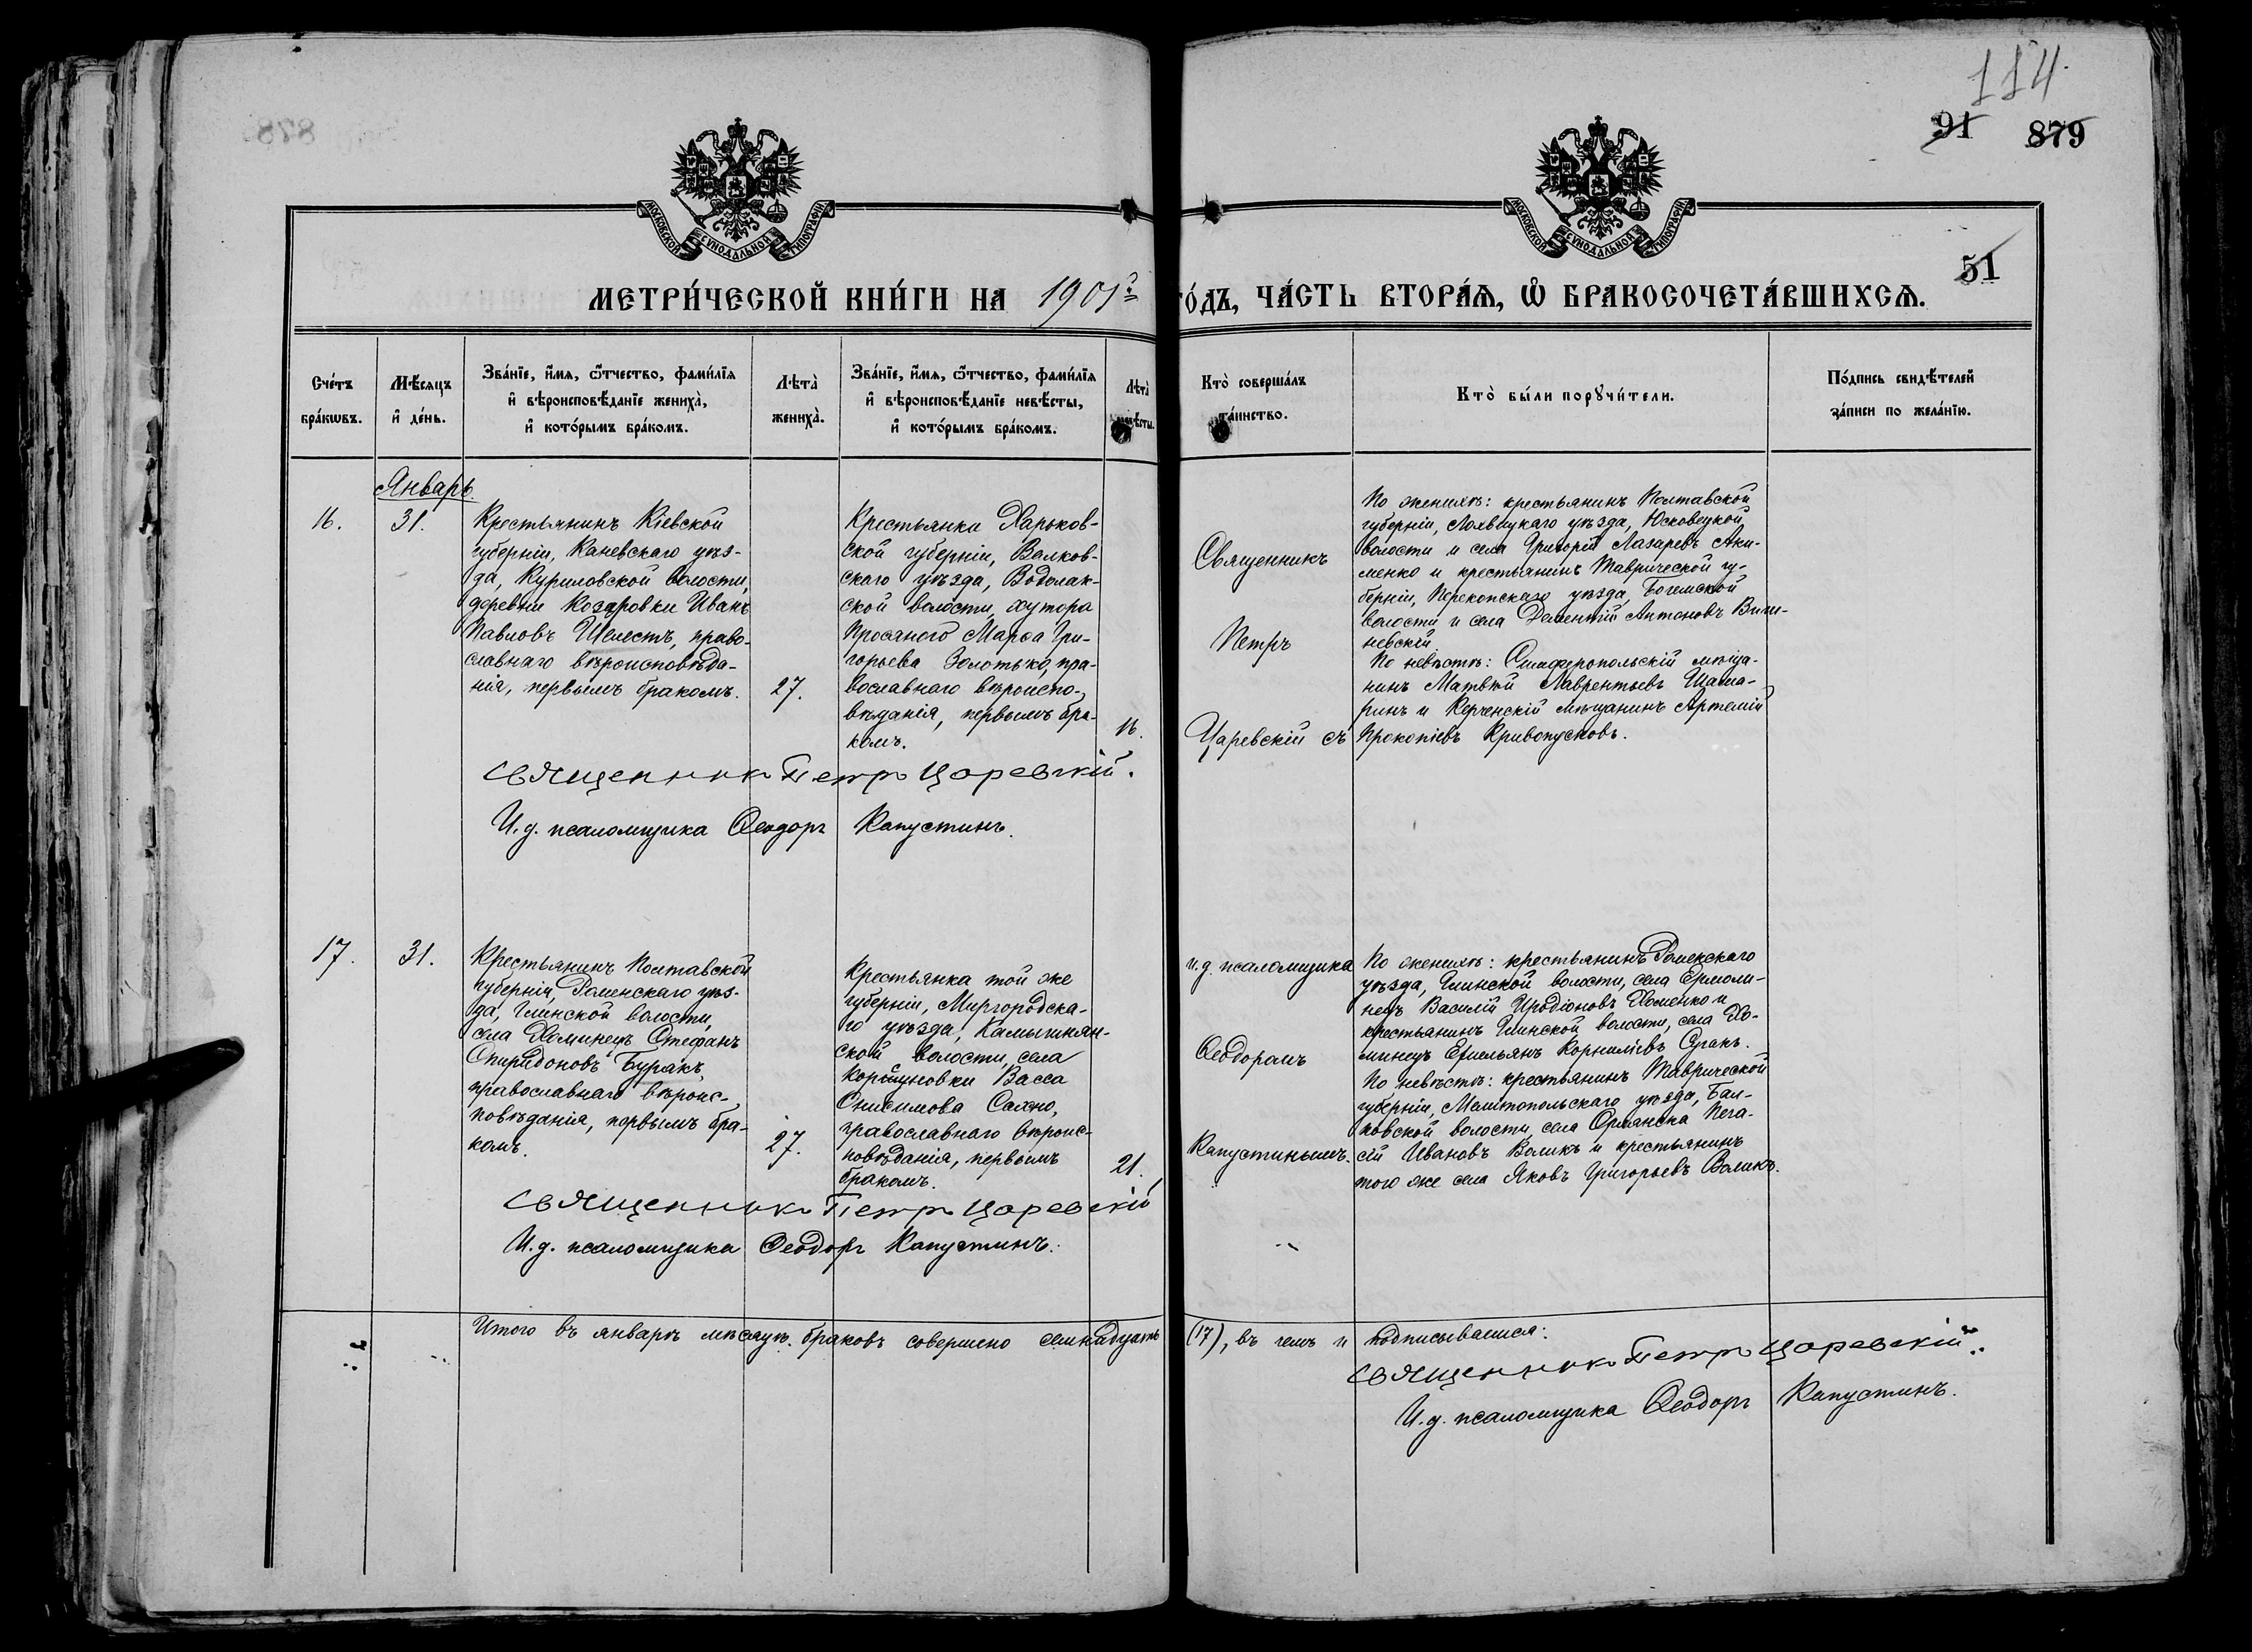 114
91 879
МОСКОВСКОЙ СѴНОДАЛЬНОЙ ТИПОГРАФІИ
МОСКОВСКОЙ СѴНОДАЛЬНОЙ ТИПОГРАФІИ
51
МЕТРИ́ЧЕСКОЙ КНИ́ГИ НА 1901 г. ГО́ДЪ, ЧА́СТЬ ВТОРА́Ѧ, Ѽ БРАКОСОЧЕТА́ВШИХСѦ.
Сче́тъ
бра́кѡвъ.
Мѣ́сяцъ
и҆ де́нь.
Зва́нїе, и҆́мѧ, ѻ҆́тчество, фами́лїѧ
и҆ вѣроисповѣ́данїе жениха̀,
и҆ кото́рымъ бра́комъ.
Лѣта̀
жениха̀.
Зва́нїе, и҆́мѧ, ѻ҆́тчество, фами́лїѧ
и҆ вѣроисповѣ́данїе невѣ́сты,
и҆ кото́рымъ бра́комъ.
Лѣта̀
невѣ́сты.
Кто̀ соверша́лъ
та́инство.
Кто̀ бы́ли порꙋчи́тели.
По́дпись свидѣ́телей
за́писи по жела́нїю.
Январь
16.
31.
Крестьянинъ Кіевской
губерніи, Каневскаго уѣз-
да, Куриловской волости,
деревни Козаровки Иванъ
Павловъ Шелестъ, право-
славнаго вѣроисповѣда-
нія, первымъ бракомъ.
27.
Крестьянка Харьков-
ской губерніи, Валков-
скаго уѣзда, Водолаж-
ской волости, хутора
Просяного Марѳа Гри-
горьева Золотько, пра-
вославнаго вѣроиспо-
вѣданія, первымъ бра-
комъ.
16.
Священникъ
Петръ
Царевскій съ
По женихѣ: крестьянинъ Полтавской
губерніи, Лохвицкаго уѣзда, Юсковецкой
волости и села Григорій Лазаревъ Аки-
менко и крестьянинъ Таврической гу-
берніи, Перекопскаго уѣзда, Богемской
волости и села Дементій Антоновъ Виш-
невскій
По невѣстѣ: Симферопольскій мѣща-
нинъ Матвѣй Лаврентьевъ Шаша-
ринъ и Керченскій мѣщанинъ Артемій
Прокопіевъ Кривопусковъ.
Священникъ Петръ Царевскій.
И. д. псаломщика Ѳеодоръ Капустинъ.
17.
31.
Крестьянинъ Полтавской
губерніи, Роменскаго уѣз-
да, Глинской волости,
села Хоминецъ Стефанъ
Спиридоновъ Бурякъ,
православнаго вѣроис-
повѣданія, первымъ бра-
комъ.
27.
Крестьянка той же
губерніи, Миргородска-
го уѣзда, Камышнян-
ской волости, села
Корсуновки Васса
Онисимова Сахно,
православнаго вѣроис-
повѣданія, первымъ
бракомъ.
21.
и. д. псаломщика
Ѳеодоромъ
Капустинымъ.
По женихѣ: крестьянинъ Роменскаго
уѣзда, Глинской волости, села Ермоли-
нецъ Василій Иродіоновъ Хоменко и
крестьянинъ Глинской волости, села Хо-
минецъ Емельянъ Корниліевъ Сугакъ.
По невѣстѣ: крестьянинъ Таврической
губерніи, Мелитопольскаго уѣзда, Бал-
ковской волости, села Орлянска
Ивановъ Воликъ и крестьянинъ
того же села Яковъ Григорьевъ Воликъ.
Священникъ Петръ Царевскій
И. д. псаломщика Ѳеодоръ Капустинъ.
Итого въ январѣ мѣсяцѣ браковъ совершено семнадцать (17), въ чемъ и подписываемся:
Священникъ Петръ Царевскій.
И. д. псаломщика Ѳеодоръ Капустинъ.